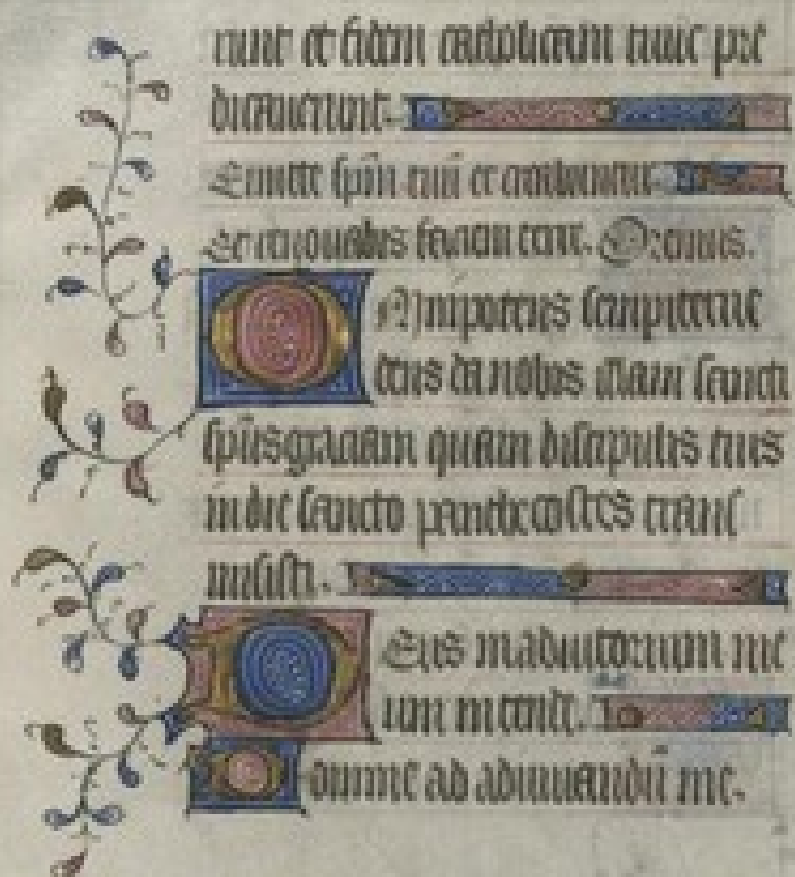 runt et fidem catholicam tunc pre
dicaverunt.
Emitte spm tuu et creabuntur
Et renovabis faciem terre. Oremus.
OMnipotens sempiterne
deus da nobis illam sancti
spus graciam quam discipulis tuis
in die sancto penthecostes trans
misisti.
DEus in adiutorium me
um intende.
Domine ad adiuuandu me.